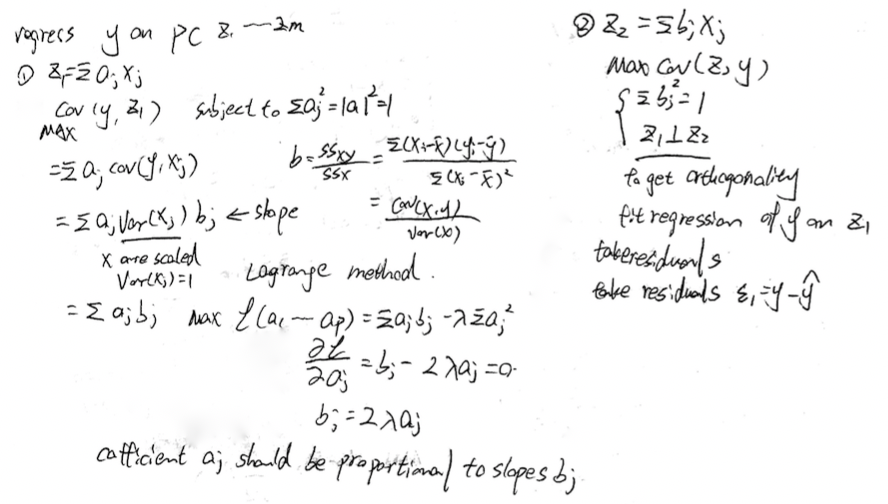 regress y on PC Z₁ — Zm
① Z₁=Σajxj
Cov (y, Z₁) subject to Σaj²=|a|²=1
MAX
=Σaj cov(y,xj)
b=SSxy/SSx=Σ(xi-x̄)(yi-ȳ)/Σ(xi-x̄)²
=Σajvar(xj)bj ← slope
=Cov(x,y)/Var(x)
x are scaled
Var(xj)=1
Lagrange method.
=Σajbj max ℓ(a₁ — ap)=Σajbj-λΣaj²
∂ℓ/∂aj=bj-2λaj=0.
bj=2λaj
cafficient aj should be proportional to slopes bj
② Z₂=Σbjxj
Max Cov(Z₂y)
{Σbj²=1
Z₁⊥Z₂
to get orthogonality
fit regression of y on Z₁
take residuals
take residuals ε₁=y-ŷ